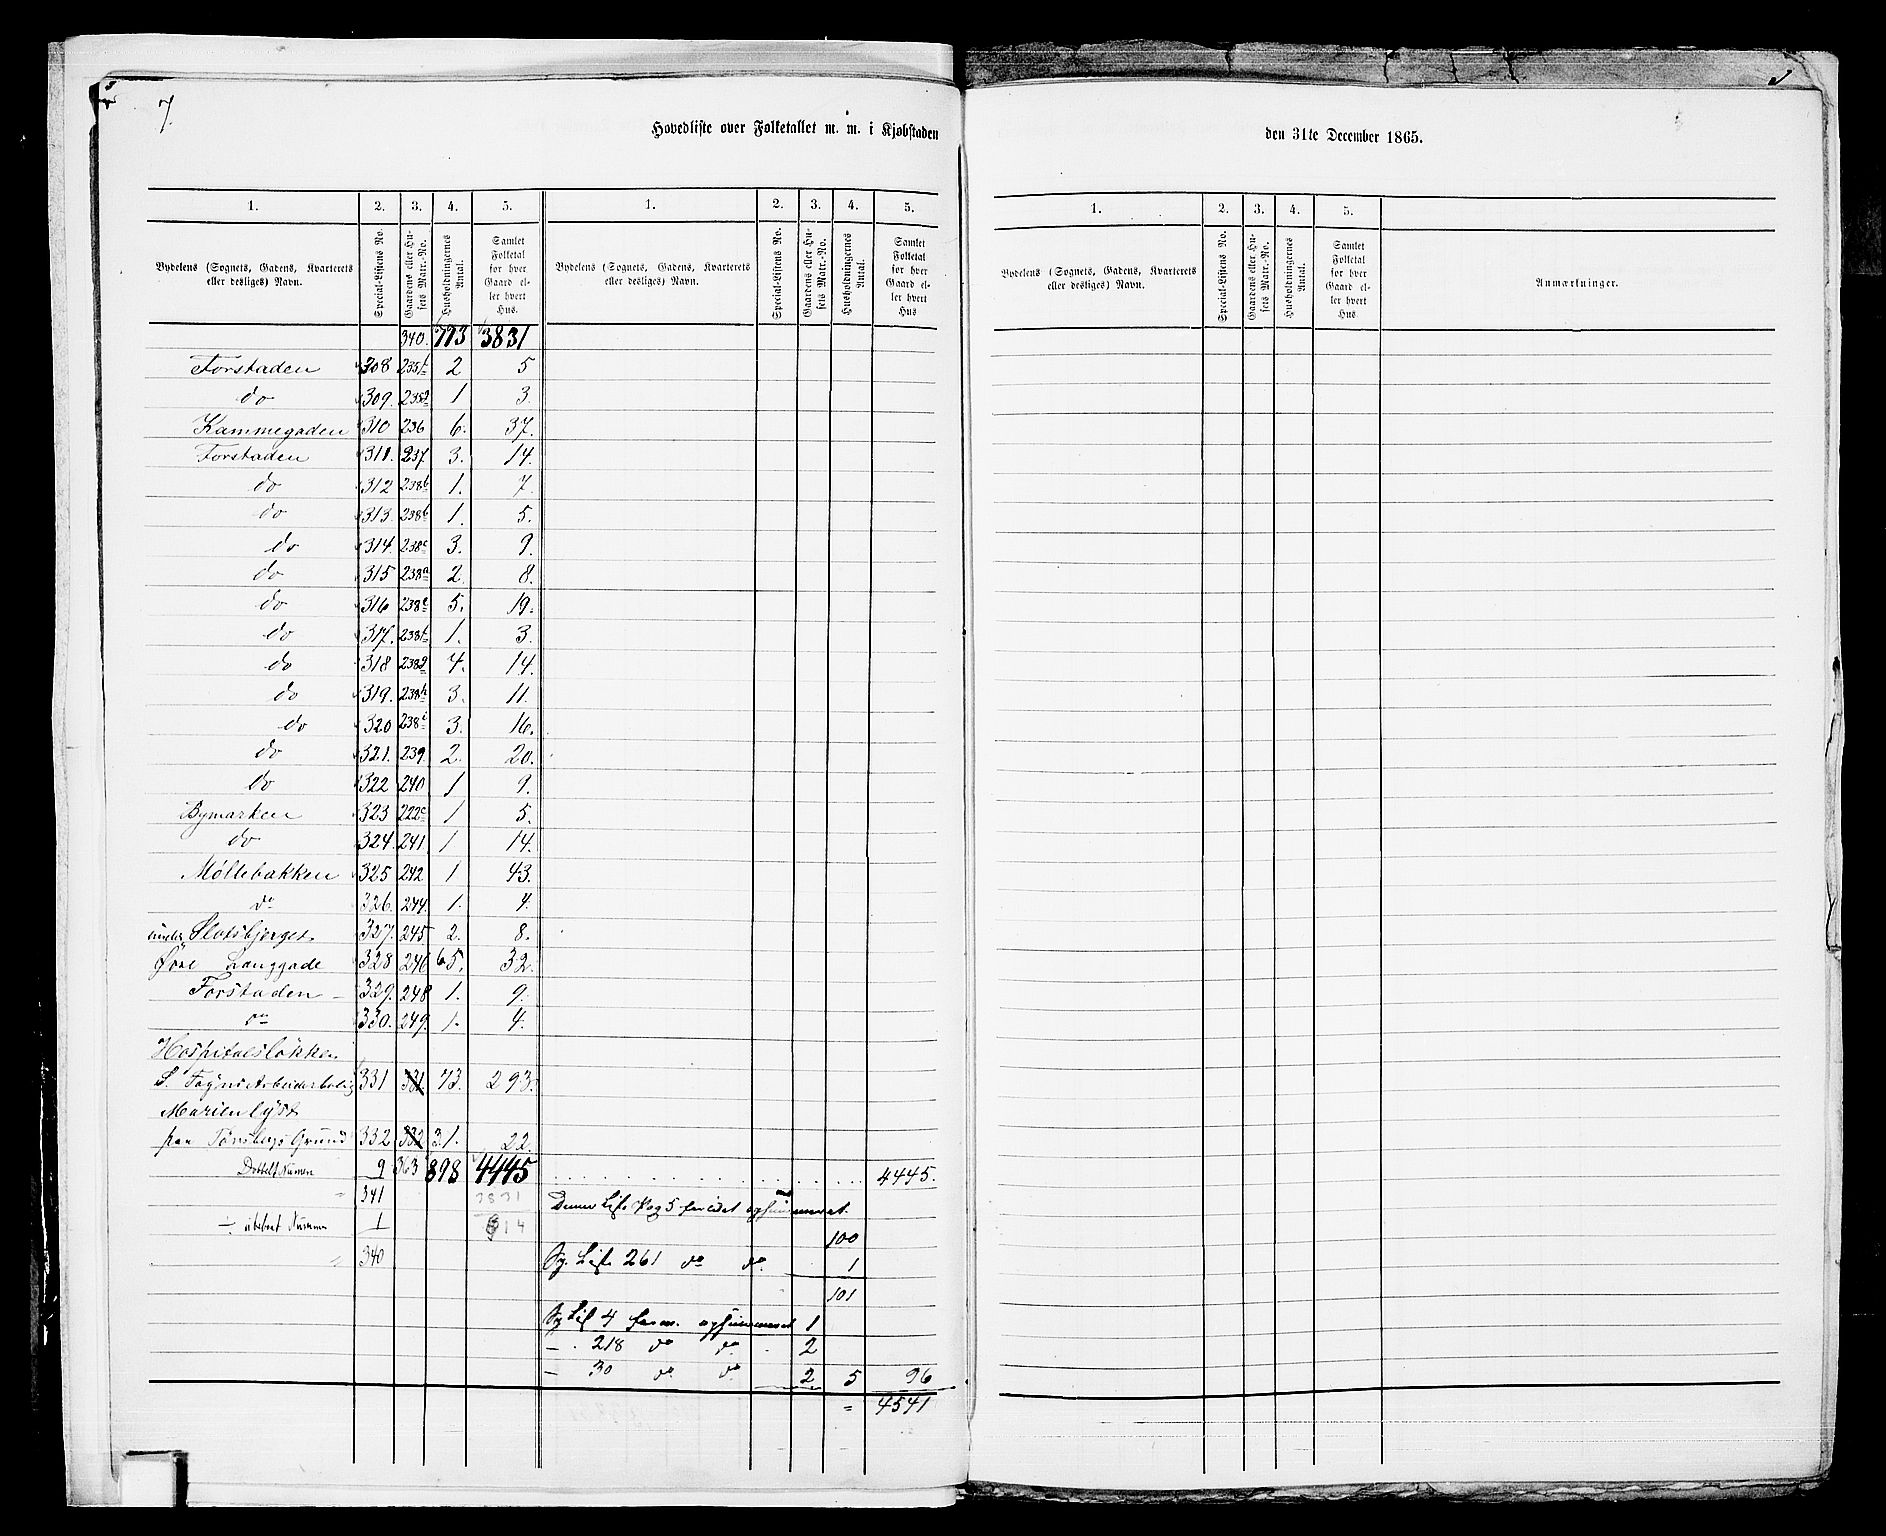 7.
Hovedliste over Folketallet m. m. i Kjøbstaden
den 31te December 1865.
1. 2. 3. 4. 5. 1. 2. 3. 4. 5.
Bydelens (Sognets, Gadens, Kvarterets eller desliges) Navn. Special-Listens No. Gaardens eller Husets Matr.-No. Husholdningernes Antal. Samlet Folketal for hver Gaard eller hvert Hus.
Bydelens (Sognets, Gadens, Kvarterets eller desliges) Navn. Special-Listens No. Gaardens eller Husets Matr.-No. Husholdningernes Antal. Samlet Folketal for hver Gaard eller hvert Hus
340. 773 3831
Forstaden 308 235b 2 5
do 309. 235a 1 3.
Kammegaden 310 236 6. 37.
Forstaden 311. 237. 3. 14.
do 312 238b 1. 7.
do 313. 238b 1. 5.
do 314. 238c 3. 9.
do 315 238a 2. 8.
do 316 238e 5. 19.
do 317. 238f 1. 3.
do 318 238g 4. 14.
do 319. 238h 3. 11.
do 320 238i 3. 16.
do 321. 239. 2. 20.
do 322 240 1 9.
Bymarken 323 222c 1 5.
do 324. 241. 1. 14.
Møllebakken 325 242 1 43.
do 326. 244. 1. 4.
under Slotsbjerget. 327. 245 2. 8.
Øvre Langgade 328 246 5. 32.
Forstaden 329. 248 1. 9.
do 330. 249. 1. 4.
Hospitalsløkken
S. Foyns Arbeiderbolig 331 331. 73. 293.
Marienlyst
paa Tønsbergs Grund 332 332 1. 22.
9 363 898 4445 4445.
341 3831
Denne Liste Pag 5
÷ 1 614
100
340 Sp. Liste 261 do do. 1
101
Sp. 4 1
- 218 do do. 2
- 30 do do. 2 5 96
= 4541
1. 2. 3. 4. 5.
Bydelens (Sognets, Gadens, Kvarterets eller desliges) Navn. Special-Listens No. Gaardens eller Husets Matr.-No. Husholdningernes Antal. Samlet Folketal for hver Gaard eller hvert Hus Anmærkninger.